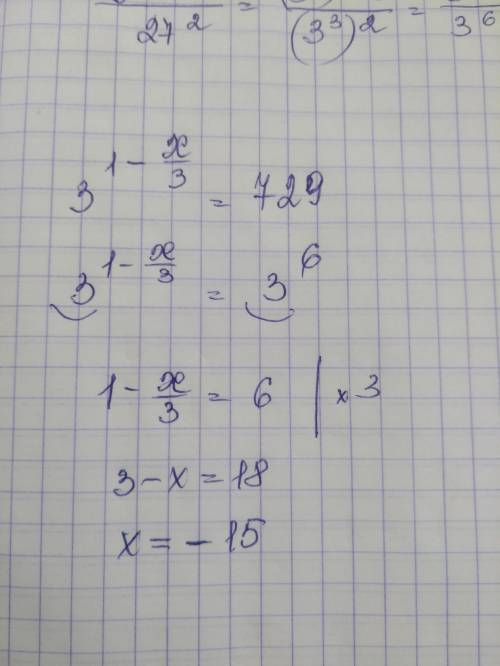 27² = (3³)² = 3⁶
3^(1 - x/3) = 729
3^(1 - x/3) = 3⁶
1 - x/3 = 6 | × 3
3 - x = 18
x = - 15